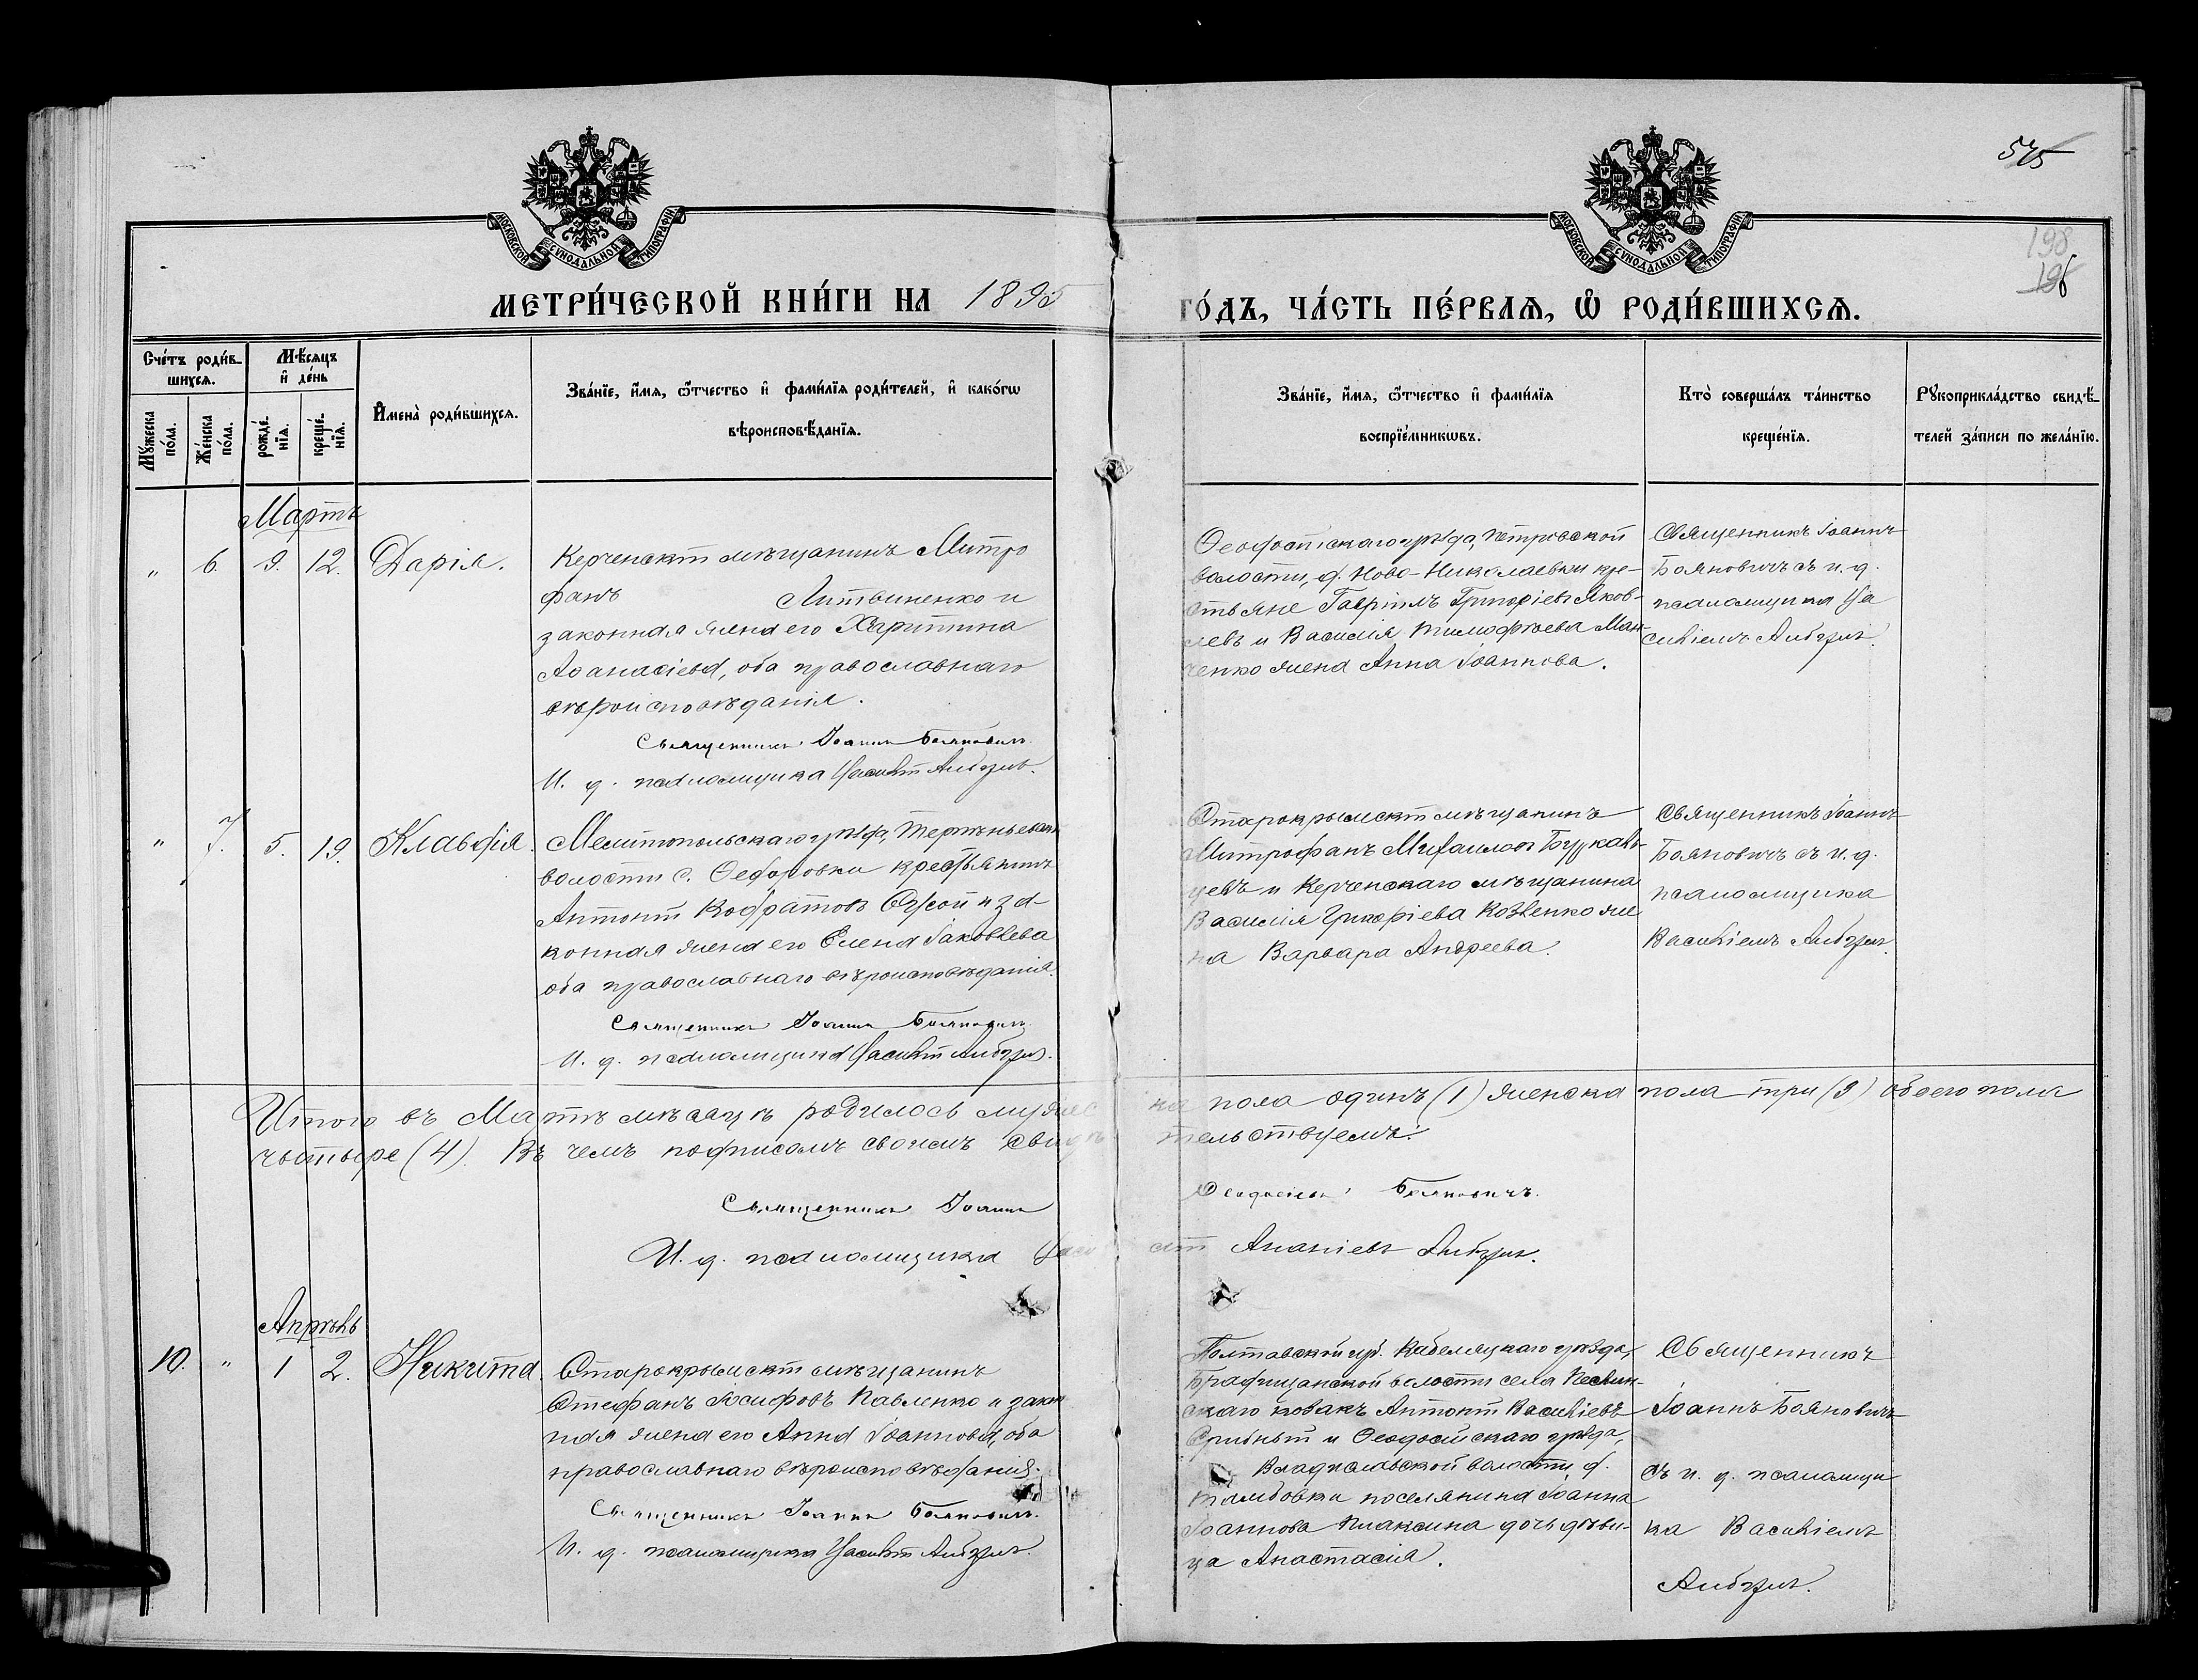 545
198
196
МОСКОВСКОЙ СѴНОДАЛЬНОЙ ТИПОГРАФІИ
МОСКОВСКОЙ СѴНОДАЛЬНОЙ ТИПОГРАФІИ
МЕТРИ́ЧЕСКОЙ КНИ́ГИ НА 1895 ГО́ДЪ, ЧА́СТЬ ПЕ́РВАѦ, Ѡ҆ РОДИ́ВШИХСѦ.
Сче́тъ роди́в-
шихсѧ.
Мꙋ́жеска по́ла.
Же́нска по́ла.
Мѣ́сѧцъ и҆ де́нь
рожде́-
нїѧ.
креще́-
нїѧ.
И҆мена̀ роди́вшихсѧ.
Зва́нїе, и҆́мѧ, ѻ҆́тчество и҆ фами́лїѧ роди́телей, и҆ како́гѡ
вѣроисповѣ́данїѧ.
Зва́нїе, и҆́мѧ, ѻ҆́тчество и҆ фами́лїѧ
воспрїе́мникѡвъ.
Кто̀ соверша́лъ та́инство
креще́нїѧ.
Рꙋкоприкла́дство свидѣ́-
телей за́писи по жела́нїю.
Мартъ
" 6. 9. 12. Дарія.
Керченскій мѣщанинъ Митро
фанъ Литвиненко и
законная жена его Харитина
Аѳанасіева, оба православнаго
вѣроисповѣданія.
Священникъ Іоаннъ Бояновичъ.
И. д. псаломщика
Ѳеодосійскаго уѣзда, Петровской
волости, д. Ново-Николаевки кре-
стьяне Гавріилъ Григоріевъ Яков-
левъ и Василія Тимофѣева Ман-
ченко жена Анна Іоаннова.
Священникъ Іоаннъ
Бояновичъ съ и. д.
псаломщика Ва
силіемъ
" 7. 5. 19. Клавдія.
Мелитопольскаго уѣзда,
волости с. Ѳедоровки крестьянинъ
Антоній Кодратовъ и за-
конная жена его Елена Іаковлева
оба православнаго вѣроисповѣданія.
Священникъ Іоаннъ Бояновичъ
И. д. псаломщика
Старокрымскій мѣщанинъ
Митрофанъ Михаиловъ
цевъ и Керченскаго мѣщанина
Василія Григоріева Козленко же
на Варвара Андреева.
Священникъ Іоаннъ
Бояновичъ съ и. д.
псаломщика
Василіемъ
Итого въ Мартѣ мѣсяцѣ родилось мужеска пола одинъ (1) женска пола три (3) обоего пола
чытыре (4). Въ чемъ подписомъ своимъ свидѣтельствуемъ:
Священникъ Іоаннъ Ѳеодосіевъ Бояновичъ.
И. д. псаломщика Ананіевъ
Апрѣль
10. " 1 2. Никита
Старокрымскій мѣщанинъ
Стефанъ Іосифовъ Павленко и закон
ная жена его Анна Іоаннова, оба
православнаго вѣроисповѣданія.
Священникъ Іоаннъ Бояновичъ.
И. д. псаломщика
Полтавской губ. Кобеляцкаго уѣзда,
волости села
скаго козакъ Антоній Василіевъ
и Ѳеодосійскаго уѣзда,
Владиславской волости д.
Тамбовки поселянина Іоанна
Іоаннова Плаксина дочь дѣви-
ца Анастасія.
Священникъ
Іоаннъ Бояновичъ
съ и. д. псаломщи
ка Василіемъ